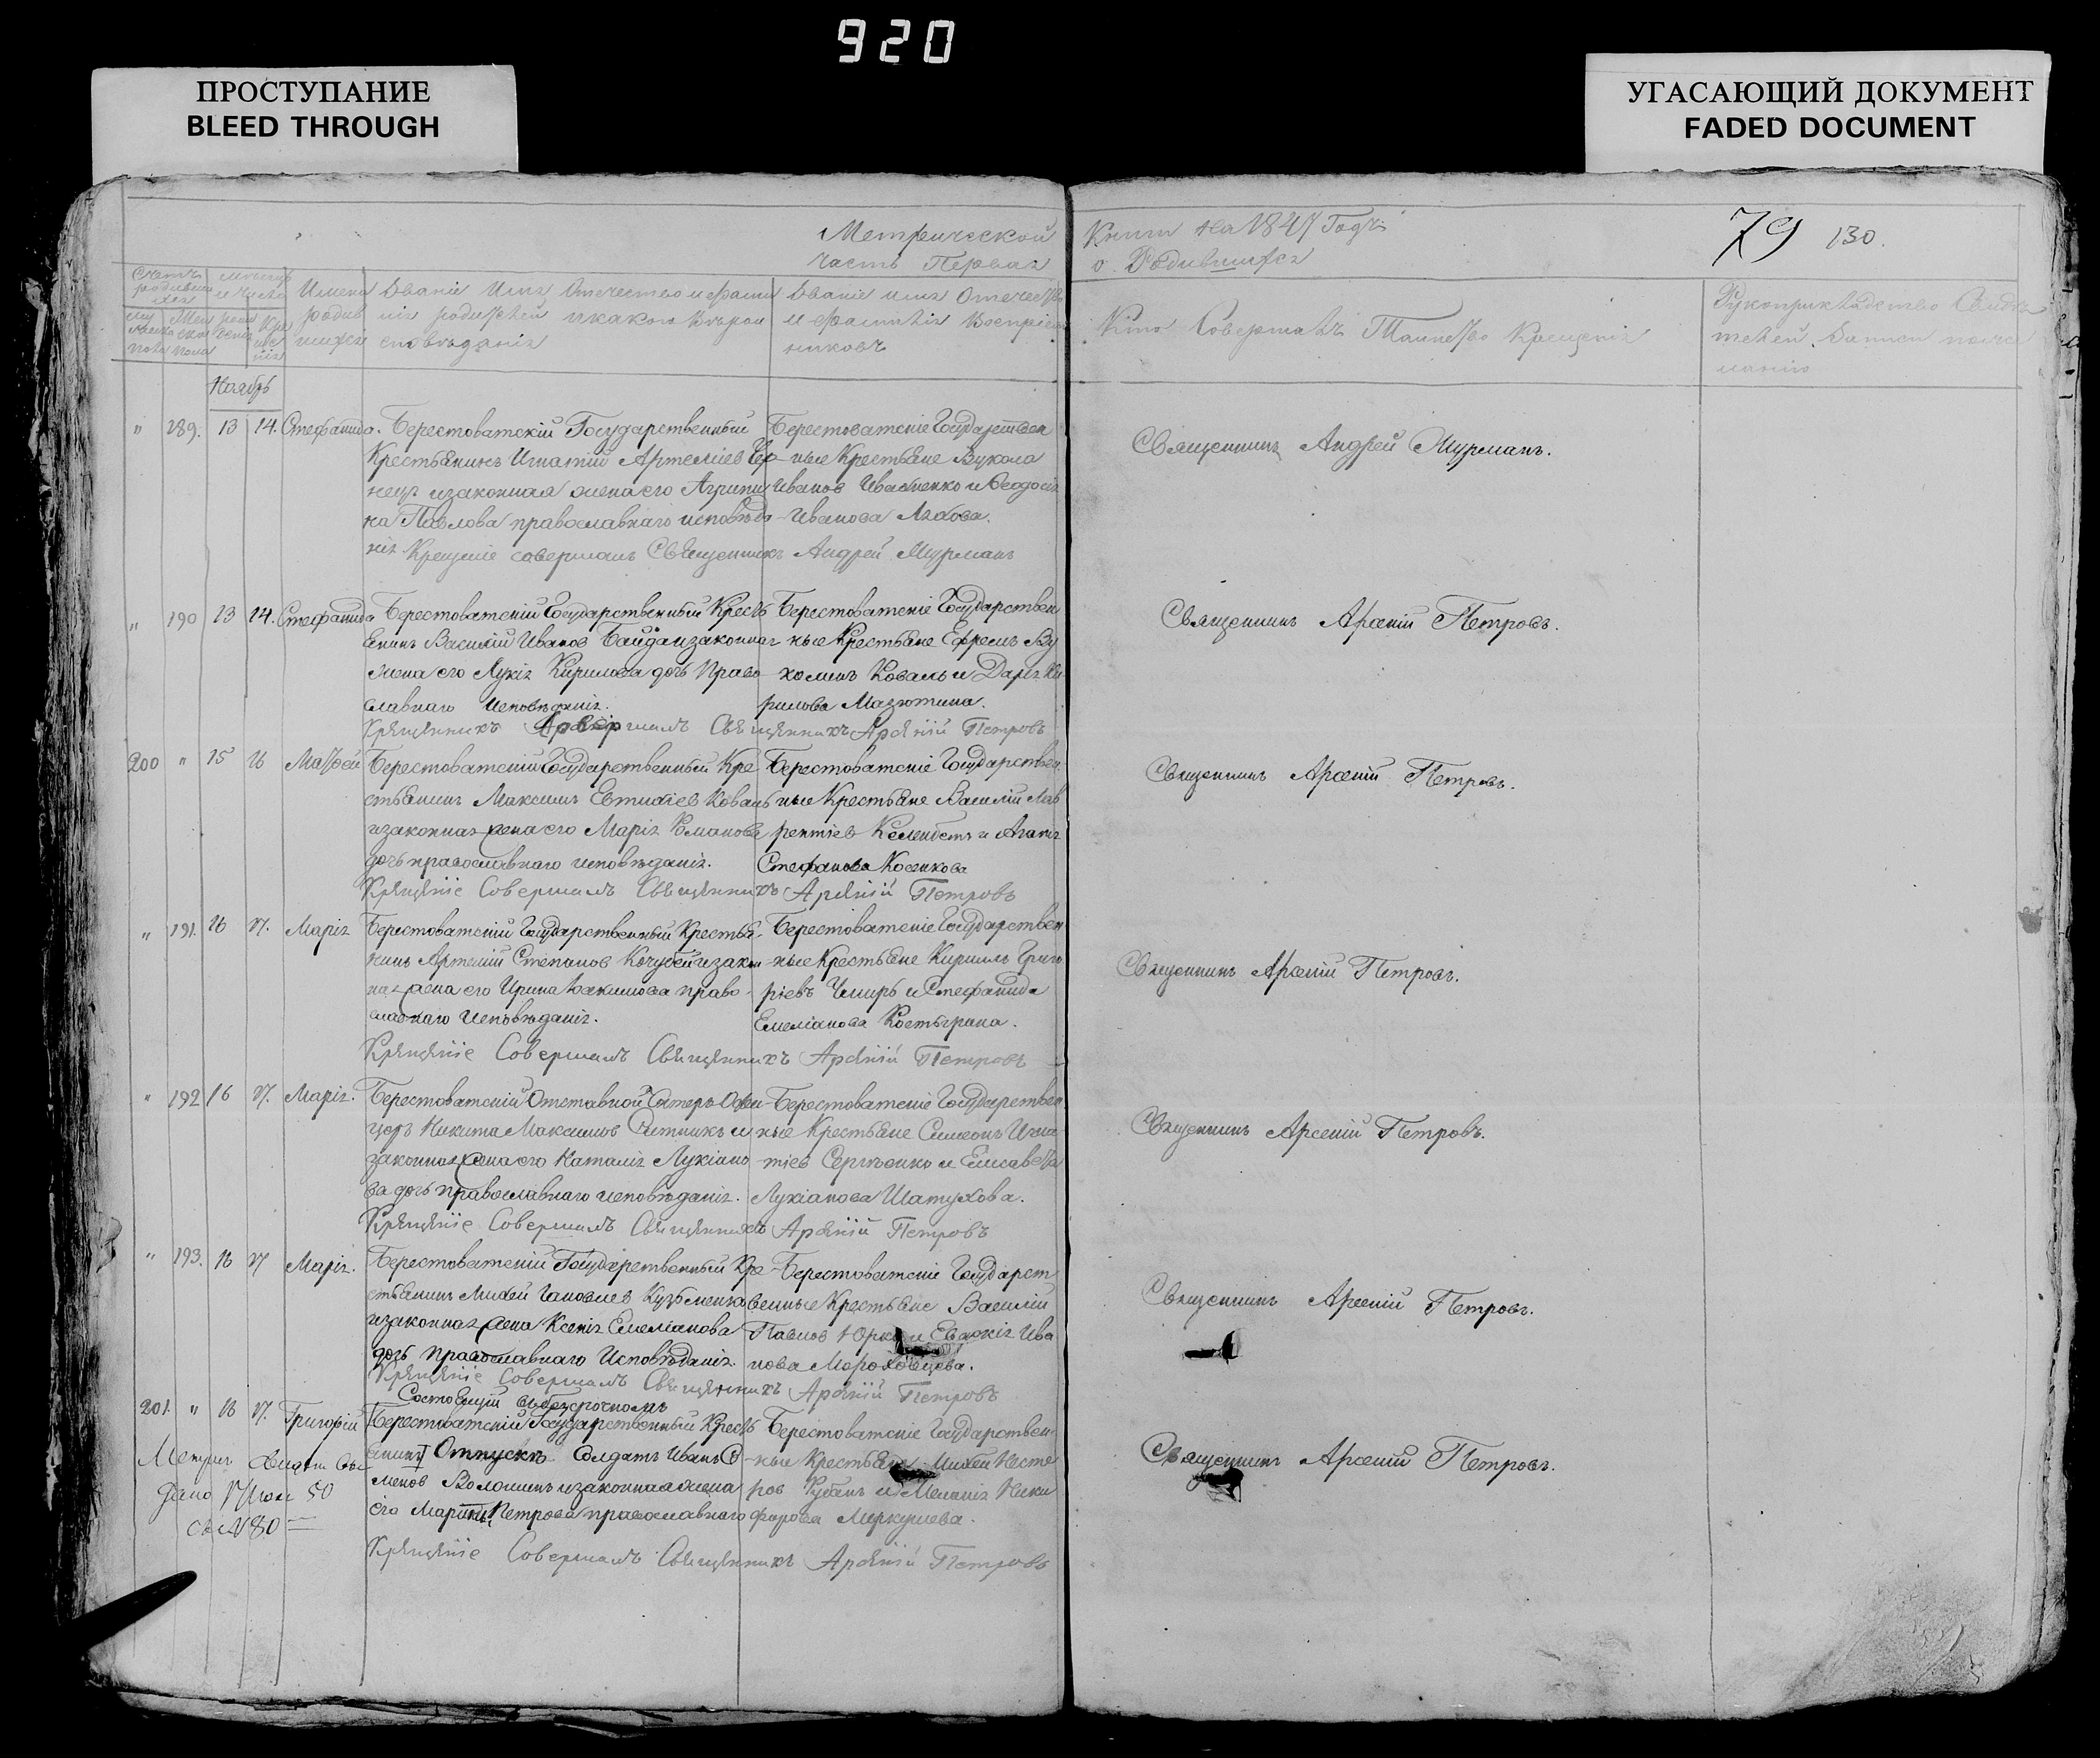 920
ПРОСТУПАНИЕ
BLEED THROUGH
УГАСАЮЩИЙ ДОКУМЕНТ
FADED DOCUMENT
Метрической
Часть Первая
Книги на 1847 Годъ
о Родившихся
79 130.
Счетъ родивши хся
Мужеска пола
Женска пола
Месяцъ и число
рож дения
Кре ще нія
Имена родив шихся
Званіе Имя Отечество и фами
лія родителей и какого Вѣроис
повѣданія
Званіе имя Отечество
и фамилія Воспріем
никовъ
Кто Совершалъ Таинство Крещенія
Рукоприкладство Свидѣ
телей Записи по же
ланію
Ноябрь
" 189. 13 14. Стефанида.
Берестоватскій Государственный
Крестьянинъ Игнатій Артеміев
и законная жена его Агрипи
на Павлова православнаго исповѣда
нія
Крещеніе совершалъ Священникъ Андрей Мурманъ
Берестоватскіе Государствен
ные Крестьяне Вукола
Иванов Ивасненко и Феодосія
Иванова
Священникъ Андрей Мурманъ.
" 190 13 14. Стефанида
Берестоватскій Государственный Кресть
янинъ Василій Иванов Байда и законная
жена его Лукія Кирилова дочь Право
славнаго Исповѣданія.
Совершалъ Священникъ Арсеній Петровъ
Берестоватскіе Государствен
ные Крестьяне Ефремъ Ву
холинъ Коваль и Дарія Ки
рилова Мазютина.
Священникъ Арсеній Петровъ.
200 " 15 16 Матфей
Берестоватскій Государственный Кре
стьянинъ Максимъ Евтихіев Коваль
и законная жена его Марія Романова
дочь православнаго исповѣданія.
Крещеніе Совершалъ Священникъ Арсеній Петровъ
Берестоватскіе Государствен
ные Крестьяне Василій Лав
рентіев и Агапія
Стефанова Косенкова
Священникъ Арсеній Петровъ.
" 191. 16 17. Марія
Берестоватскій Государственный Крестья
нинъ Артемій Степанов Кочубей и закон
ная жена его Ирина Іоакимова право
славнаго Исповѣданія.
Крещеніе Совершалъ Священникъ Арсеній Петровъ
Берестоватскіе Государствен
ные Крестьяне Кирилъ Григо
ріевъ Чмиръ и Стефанида
Емеліанова Костырина.
Священникъ Арсеній Петровъ.
" 192 16 17. Марія.
Берестоватскій Отставной Унтеръ-Офи
церъ Никита Максимов Ситникъ и
законная жена его Наталія Лукіано
ва дочь православнаго исповѣданія.
Крещеніе Совершалъ Священникъ Арсеній Петровъ
Берестоватскіе Государствен
ные Крестьяне Симеонъ Игна
тіев Сергѣенко и Елисавета
Лукіанова Шатухова.
Священникъ Арсеній Петровъ.
" 193. 16 17 Марія.
Берестоватскій Государственный Кре
стьянинъ Михей Іаковлев Кузьменко
и законная жена Ксенія Емеліанова
дочь православнаго Исповѣданія.
Крещеніе Совершалъ Священникъ Арсеній Петровъ
Берестоватскіе Государст
венные Крестьяне Василій
Павлов Юрко и Евдокія Ива
нова Мороховцова.
Священникъ Арсеній Петровъ.
201. " 16 17. Григорій
Состоящій въ безсрочномъ
Берестоватскій Государственный Кресть
янинъ Отпускѣ Солдатъ Иванъ С
менов Волошинъ и законная жена
его Марина Петрова православнаго
Крещеніе Совершалъ Священникъ Арсеній Петровъ
Берестоватскіе Государствен
ные Крестьяне Михей Несте
ров Рубанъ и Меланія Ники
форова Меркушева.
Священникъ Арсеній Петровъ.
дано 17 Июля 50
№ 80